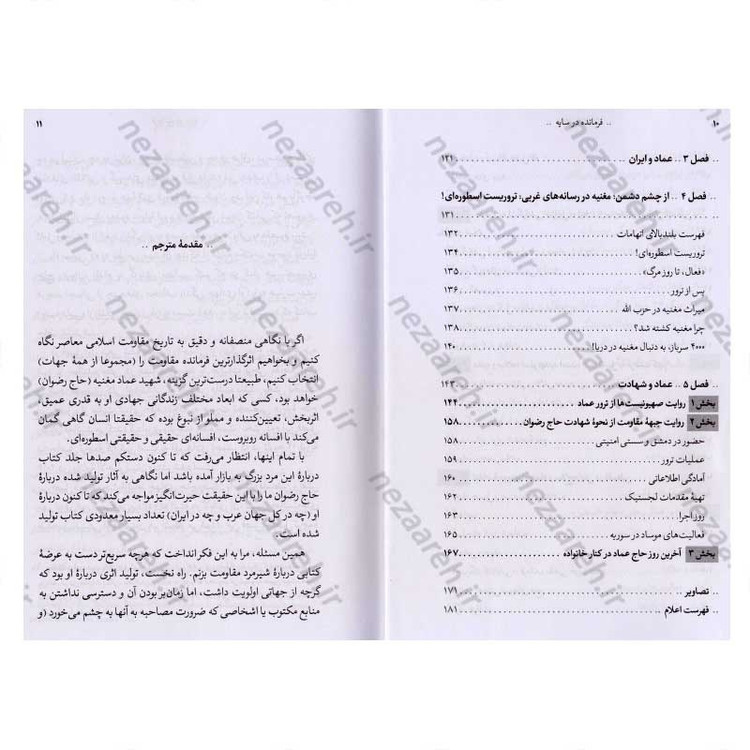 ۱۰ .. فرمانده در سایه ..
.. فصل ۳ .. عماد و ایران ۱۲۱
.. فصل ۴ .. از چشم دشمن؛ مغنیه در رسانه‌های غربی؛ تروریست اسطوره‌ای!
۱۳۱
فهرست بلندبالای اتهامات ۱۳۲
تروریست اسطوره‌ای! ۱۳۴
«فعال، تا روز مرگ» ۱۳۵
پس از ترور ۱۳۶
میراث مغنیه در حزب الله ۱۳۷
چرا مغنیه کشته شد؟ ۱۳۸
۴۰۰۰ سرباز، به دنبال مغنیه در دریا! ۱۴۰
.. فصل ۵ .. عماد و شهادت ۱۴۳
بخش ۱ روایت صهیونیست‌ها از ترور عماد ۱۴۴
بخش ۲ روایت جبهۀ مقاومت از نحوۀ شهادت حاج رضوان ۱۵۸
حضور در دمشق و سستی امنیتی ۱۵۸
عملیات ترور ۱۵۹
آمادگی اطلاعاتی ۱۶۰
تهیۀ مقدمات لجستیک ۱۶۲
روز اجرا ۱۶۳
فعالیت‌های موساد در سوریه ۱۶۵
بخش ۳ آخرین روز حاج عماد در کنار خانواده ۱۶۷
.. تصاویر ۱۷۱
.. فهرست اعلام ۱۸۱
۱۱
.. مقدمۀ مترجم ..
اگر با نگاهی منصفانه و دقیق به تاریخ مقاومت اسلامی معاصر نگاه
کنیم و بخواهیم اثرگذارترین فرمانده مقاومت را (مجموعا از همۀ جهات)
انتخاب کنیم، طبیعتا درست‌ترین گزینه، شهید عماد مغنیه (حاج رضوان)
خواهد بود، کسی که ابعاد مختلف زندگانی جهادی او به قدری عمیق،
اثربخش، تعیین‌کننده و مملو از نبوغ بوده که حقیقتا انسان گاهی گمان
می‌کند با افسانه روبروست، افسانه‌ای حقیقی و حقیقتی اسطوره‌ای.
با تمام اینها، انتظار می‌رفت که تا کنون دستکم صدها جلد کتاب
دربارۀ این مرد بزرگ به بازار آمده باشد اما نگاهی به آثار تولید شده دربارۀ
حاج رضوان ما را با این حقیقت حیرت‌انگیز مواجه می‌کند که تا کنون دربارۀ
او (چه در کل جهان عرب و چه در ایران) تعداد بسیار معدودی کتاب تولید
شده است.
همین مسئله، مرا به این فکر انداخت که هرچه سریع‌تر دست به عرضۀ
کتابی دربارۀ شیرمرد مقاومت بزنم. راه نخست، تولید اثری دربارۀ او بود که
گرچه از جهاتی اولویت داشت، اما زمان‌بر بودن آن و دسترسی نداشتن به
منابع مکتوب یا اشخاصی که ضرورت مصاحبه به آنها به چشم می‌خورد (و
nezaareh.ir
nezaareh.ir
nezaareh.ir
nezaareh.ir
nezaareh.ir
nezaareh.ir